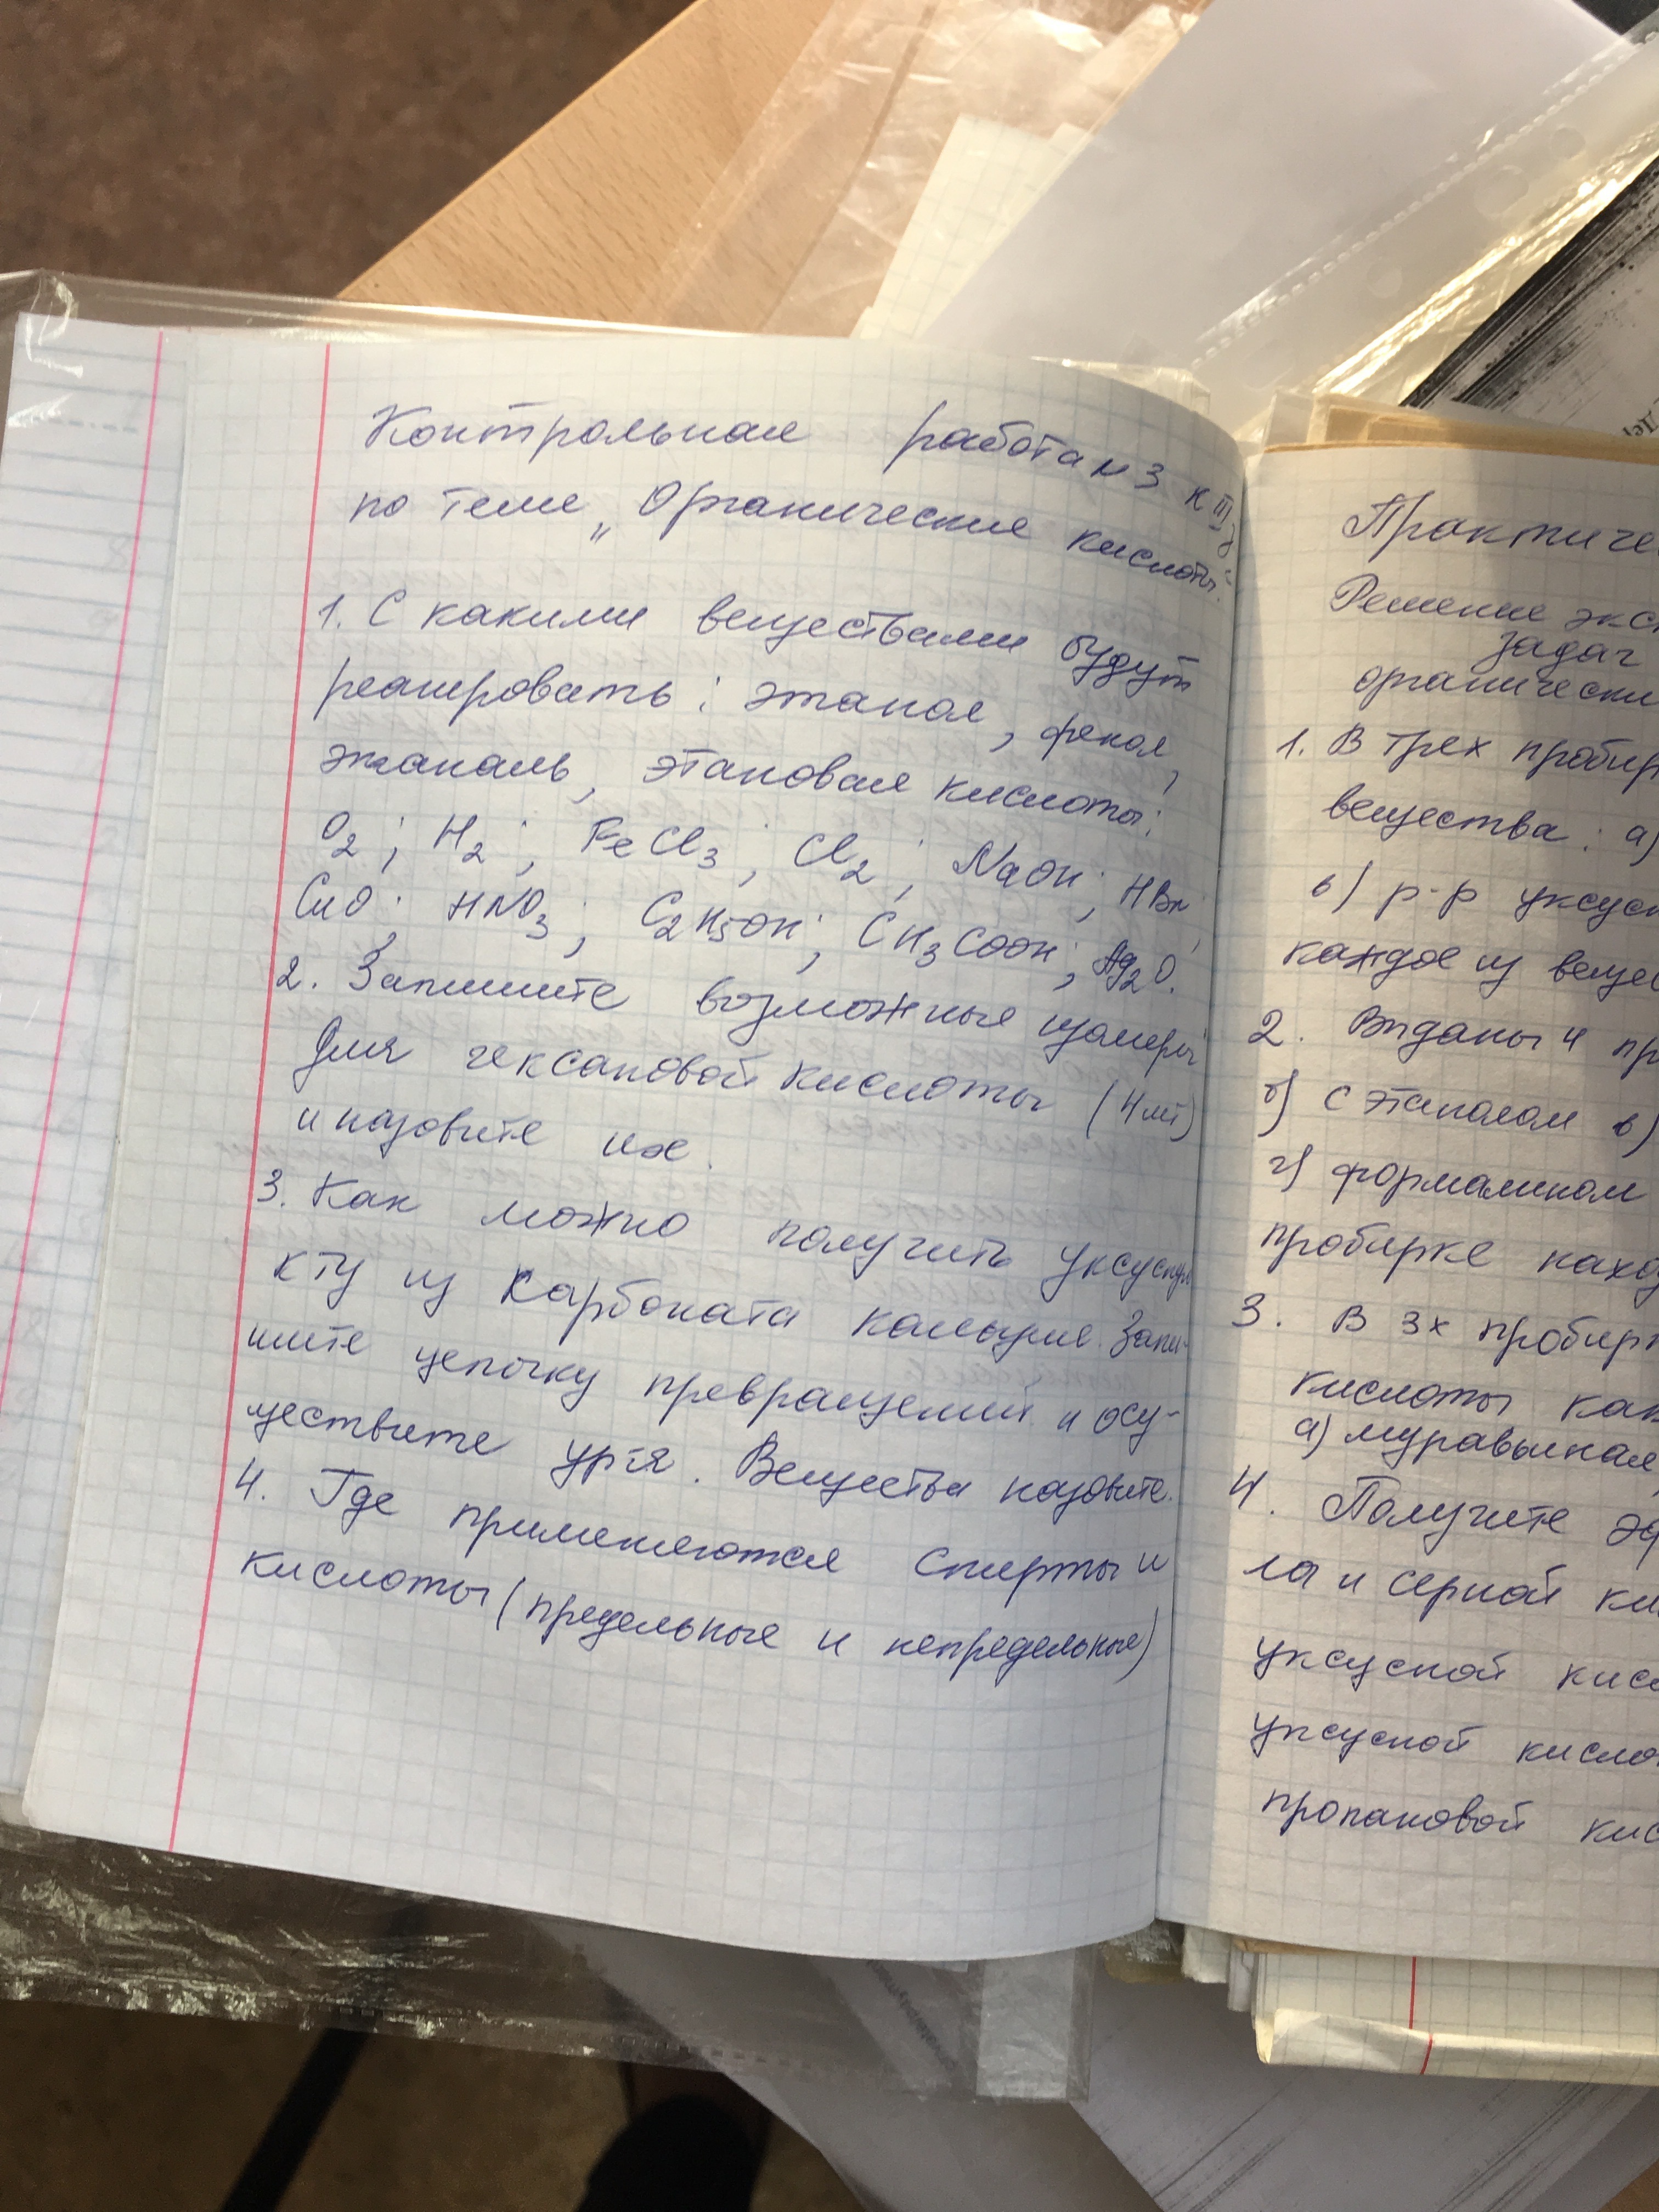 Контрольная работа N 3 к III
по теме „Органические кислоты“.
1. С какими веществами будут
реагировать: этанол, фенол,
этаналь, этановая кислоты:
O2; H2; FeCl3; Cl2; NaOH; HBr;
CuO; HNO3; C2H5OH; CH3COOH; Ag2O.
2. Запишите возможные изомеры
для гексановой кислоты (4 шт)
и назовите их.
3. Как можно получить уксусную
к-ту из карбоната кальция. Запи-
шите цепочку превращений и осу-
ществите ур-я. Вещества назовите.
4. Где применяются спирты и
кислоты (предельные и непредельные)
Практиче
Решение экс
задач
органически
1. В трех пробир
вещества: а)
в) р-р уксус
каждое из вещес
2. Выданы 4 пр
б) с этанолом в)
г) формалином
пробирке нахо
3. В 3х пробирк
кислоты как
а) муравьиная,
4. Получите эф
ла и серной ки
уксусной кис
уксусной кисло
пропановой кис